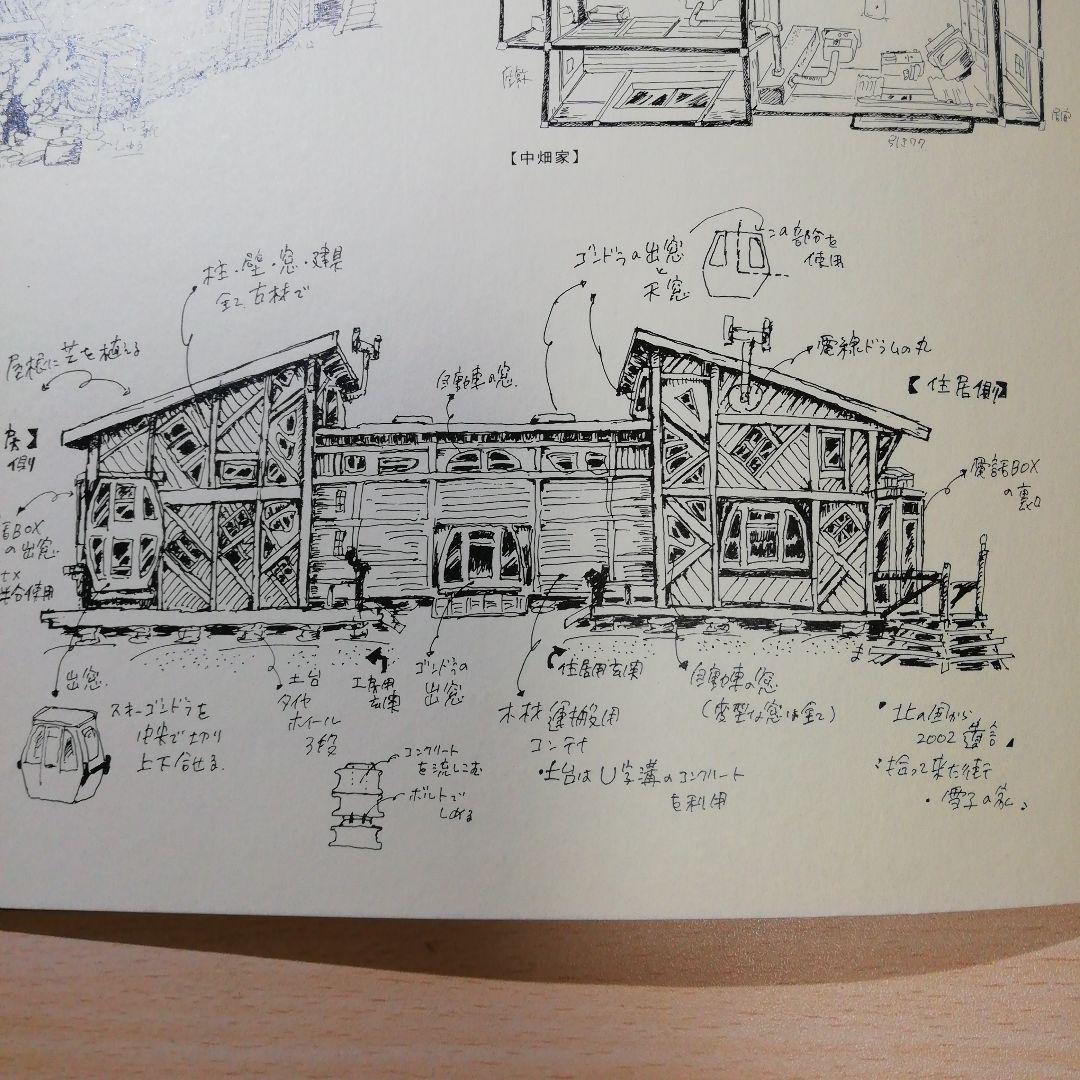 引きワク
【中畑家】
柱・壁・窓・建具
全て古材で
ゴンドラの出窓
と
天窓
この部分を
使用
屋根に芝を植える
自動車の窓
電線ドラムの丸
【住居側】
側】
電話BOX
の裏口
BOX
の出窓
使用
出窓
スキーゴンドラを
中央で切り
上下合せる
土台
タイヤ
ホイール
3段
工房用
玄関
ゴンドラの
出窓
木材運搬用
コンテナ
住居用玄関
自動車の窓
(変型な窓は全て)
コンクリート
を流しこむ
ボルトで
しめる
・土台はU字溝のコンクリート
を利用
北の国から
2002遺言
拾って来た街
・雪子の家